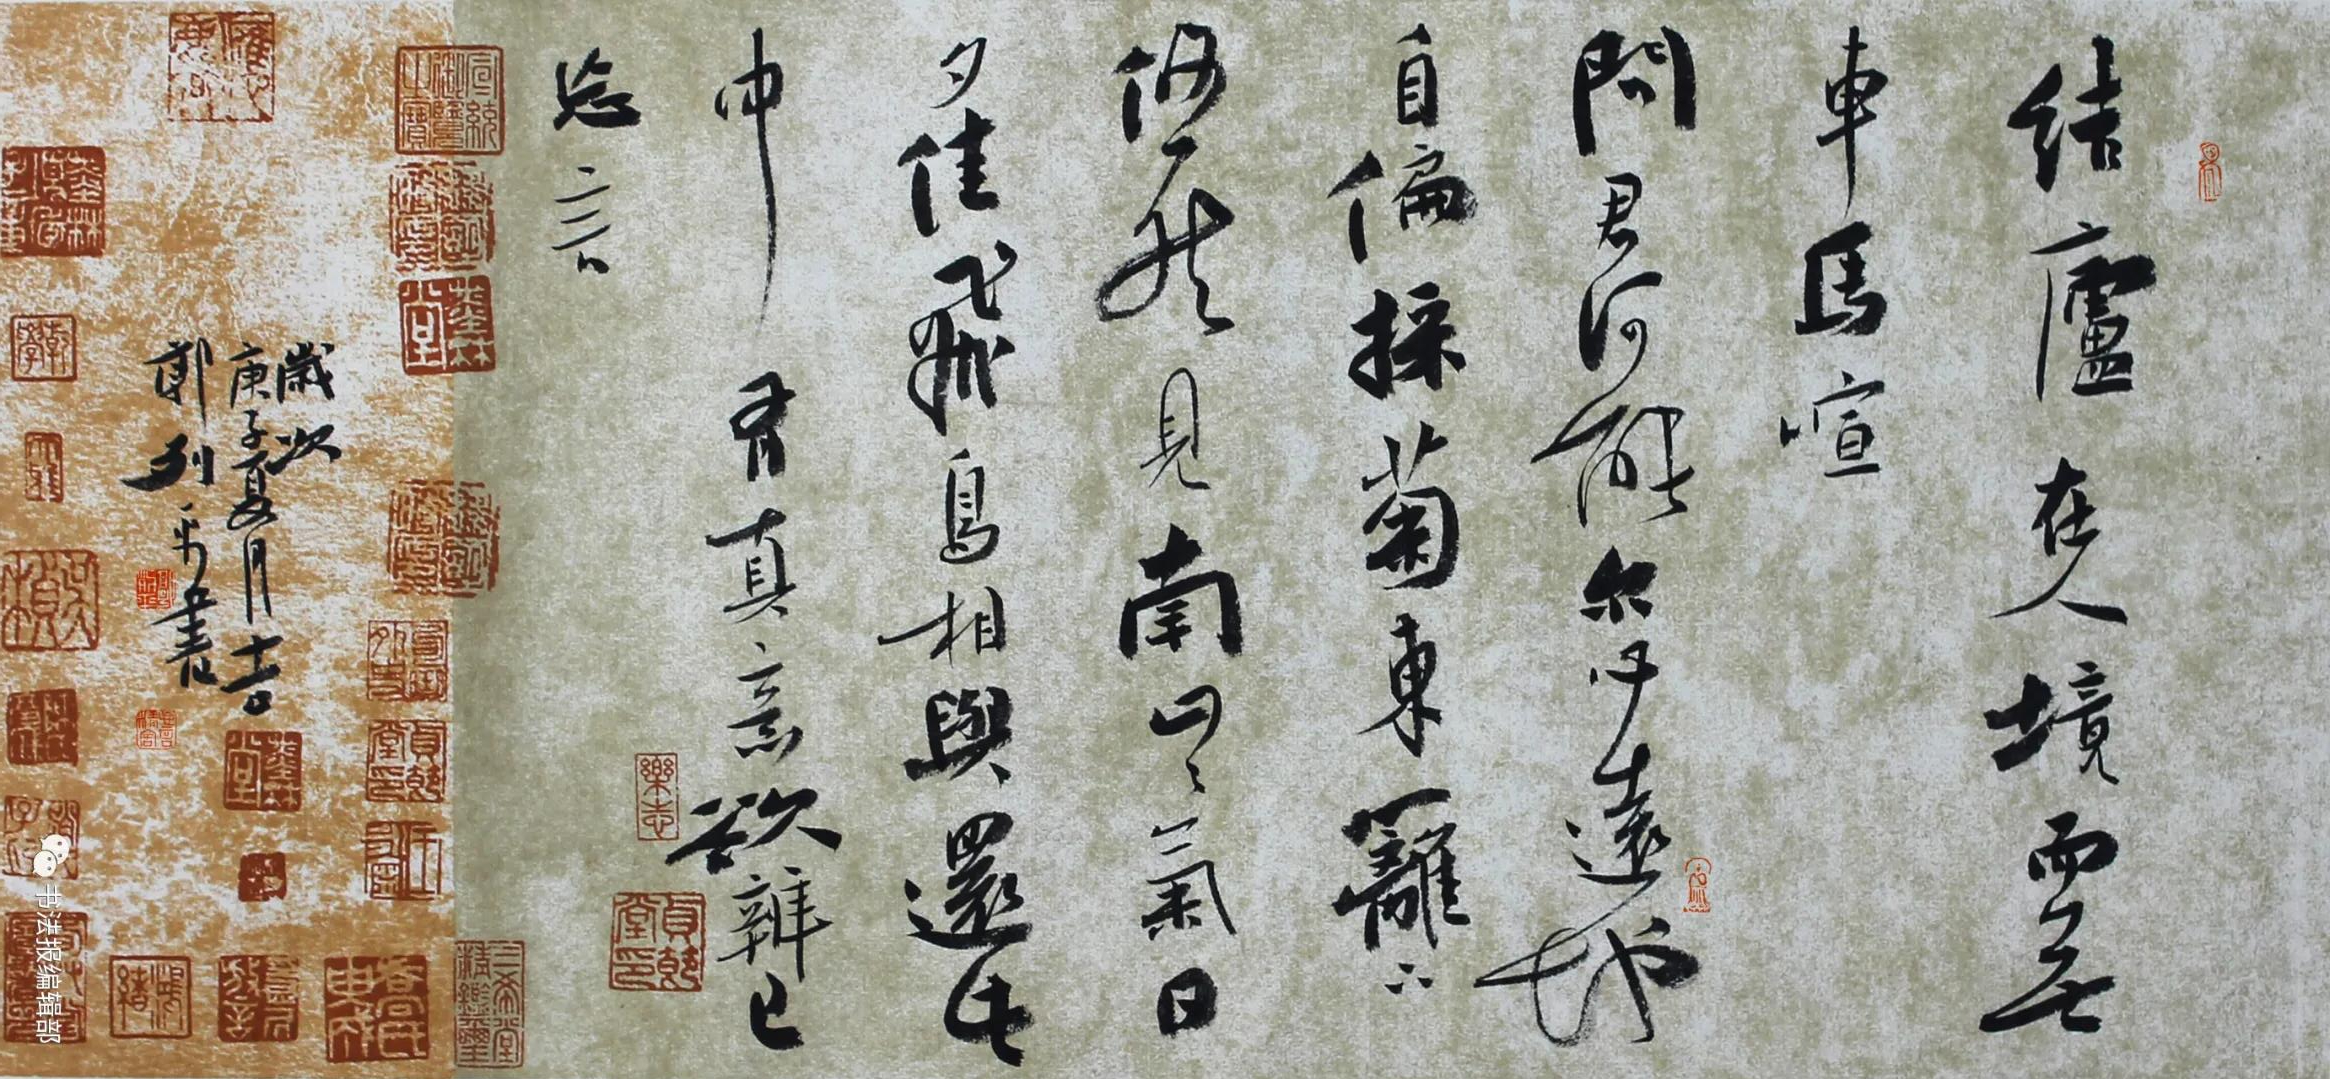 結廬在人境而無
車馬喧
問君何能尔心遠地
自偏採菊東籬下
悠然見南山〻氣日
夕佳飛鳥相與還此
中有真意欲辨已
忘言
歲次
庚子夏月吉
郭列平書
樂志
三希堂精鑑璽
书法报编辑部